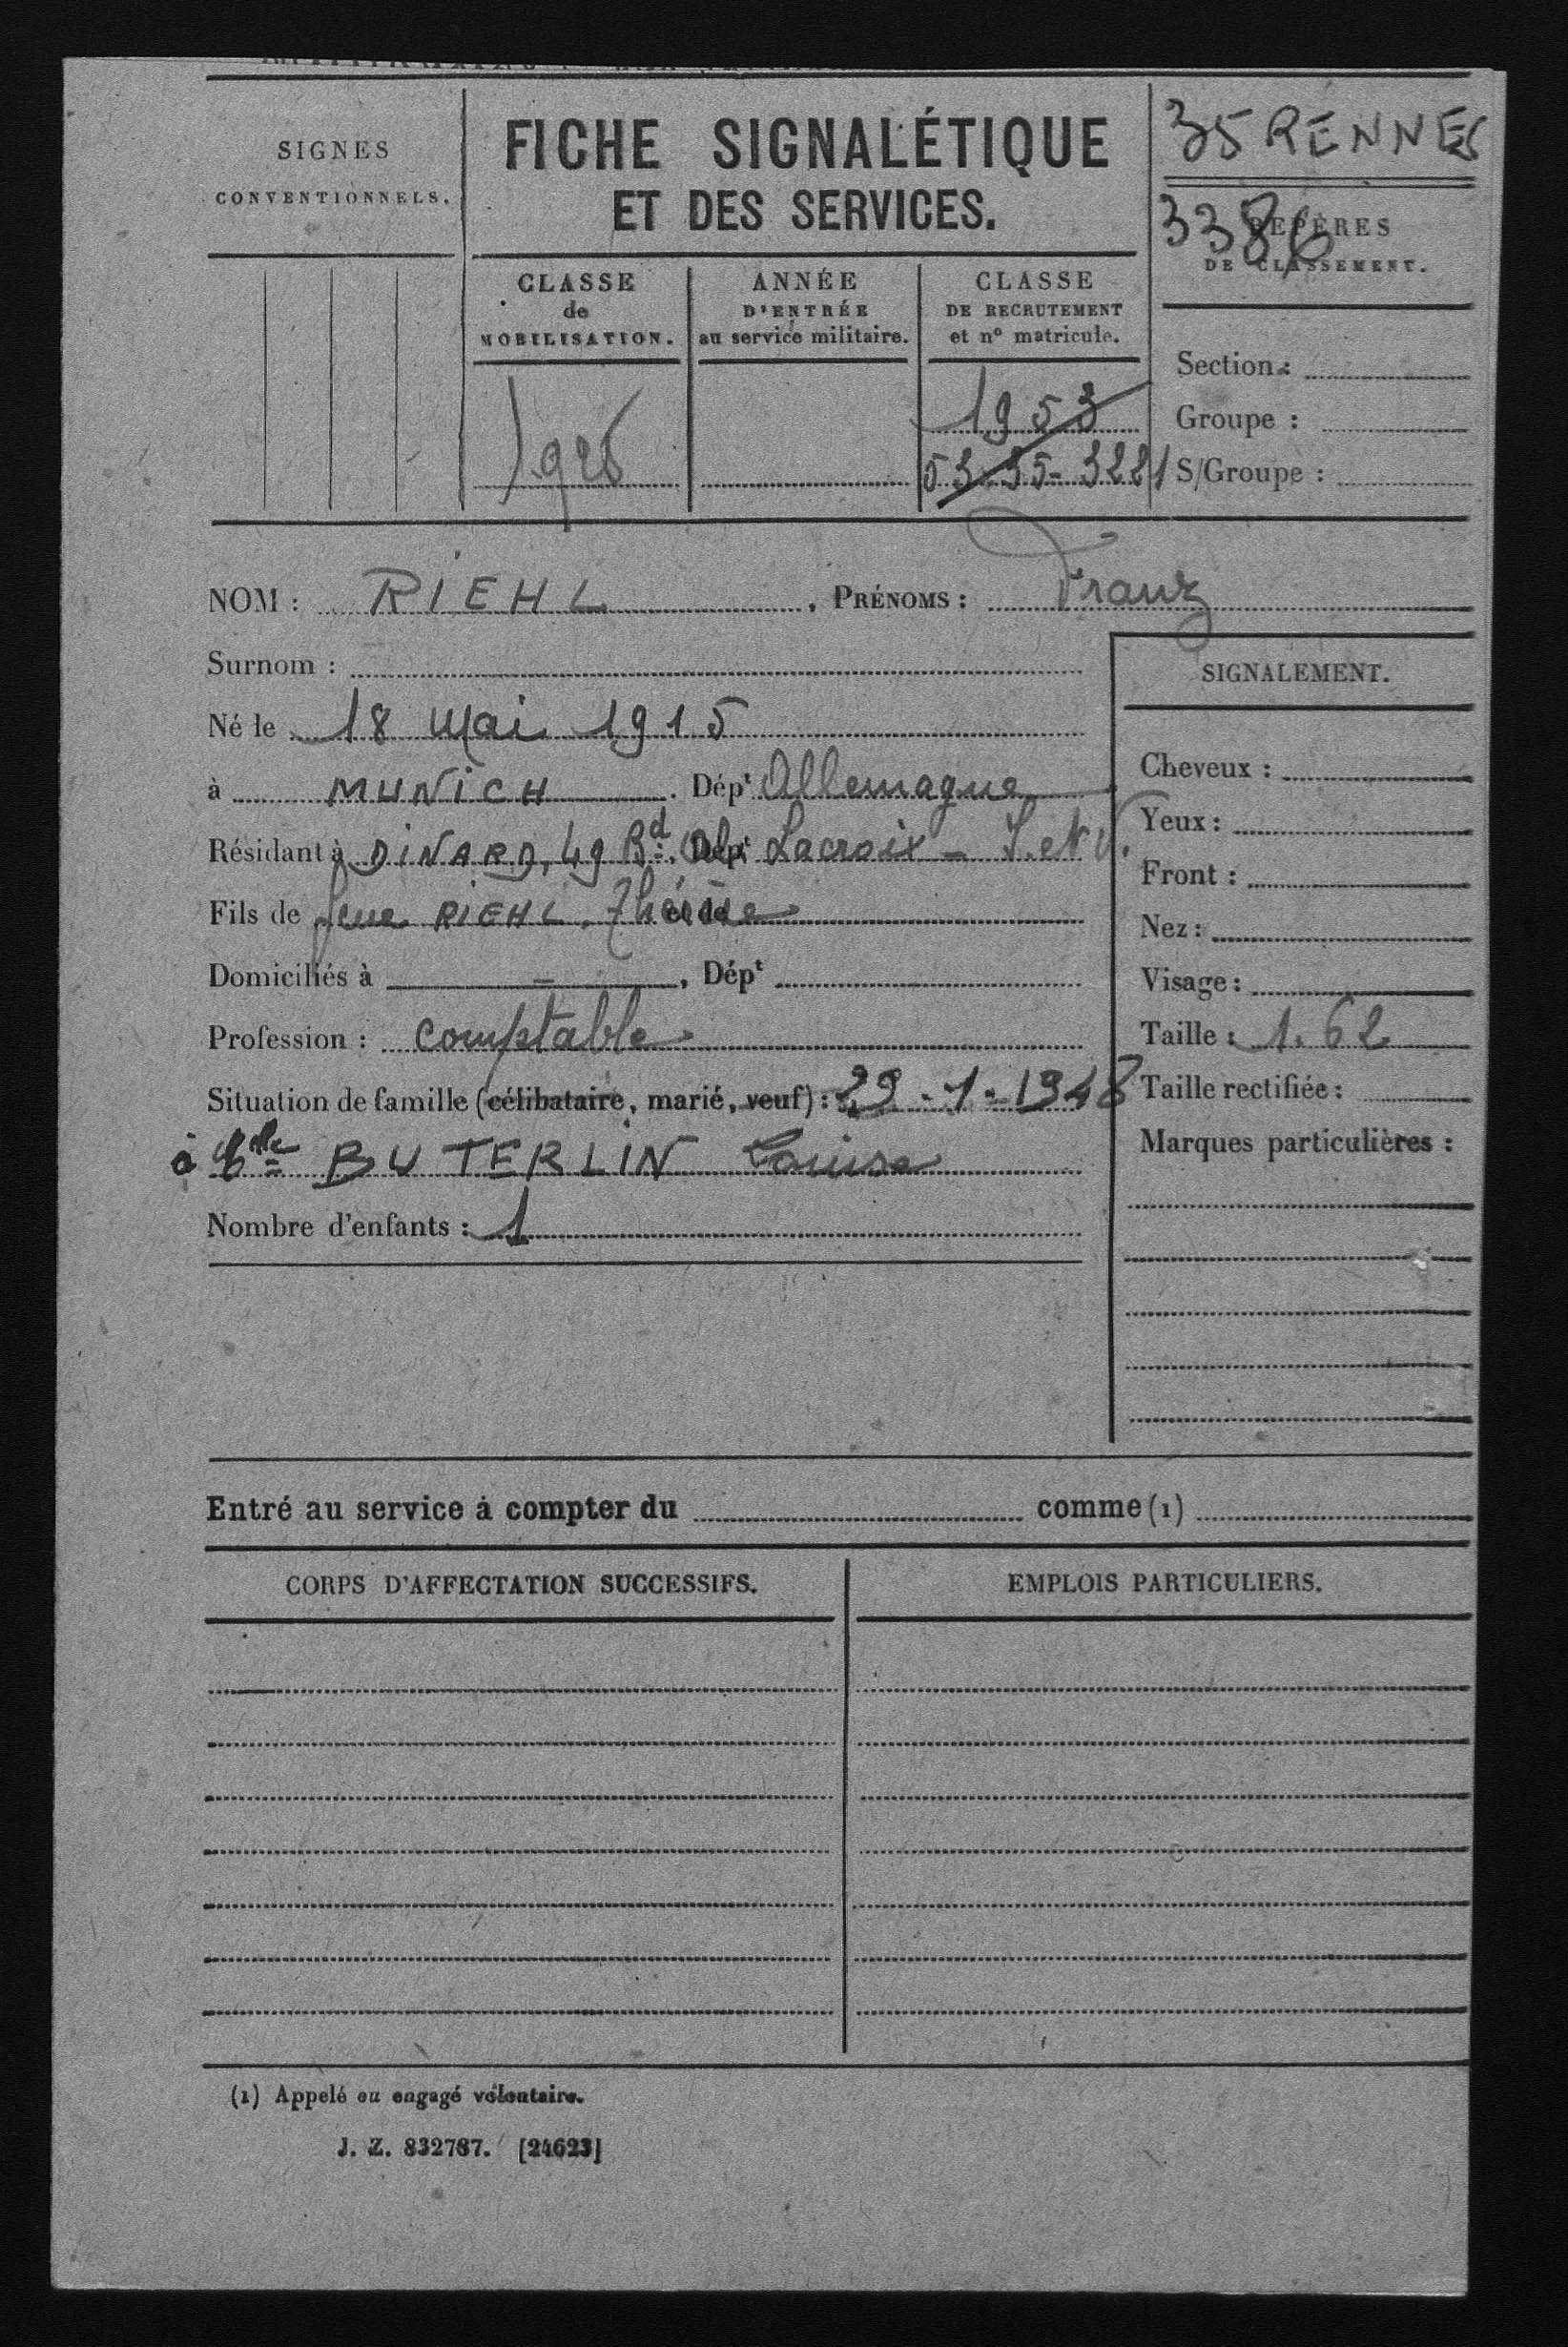 SIGNES
CONVENTIONNELS.
FICHE SIGNALÉTIQUE
ET DES SERVICES.
35 RENNES
3386
REPÈRES
DE CLASSEMENT.
CLASSE
de
MOBILISATION.
ANNÉE
D'ENTRÉE
au service militaire.
CLASSE
DE RECRUTEMENT
et n° matricule.
1953
53-35-3221
Section :
Groupe :
S/Groupe :
NOM : RIEHL , PRÉNOMS : Franz
Surnom :
Né le 18 mai 1915
à MUNICH . Dépt Allemagne
Résidant à DINARD, 49 Bd , Dépt Lacroix - I. et V.
Fils de feue RIEHL, Thérèse et de
Domiciliés à - , Dépt
Profession : comptable
Situation de famille (célibataire, marié, veuf) : 29-1-1948
à Mlle BUTERLIN Louise
Nombre d'enfants : 1
SIGNALEMENT.
Cheveux :
Yeux :
Front :
Nez :
Visage :
Taille : 1.62
Taille rectifiée :
Marques particulières :
Entré au service à compter du comme (1)
CORPS D'AFFECTATION SUCCESSIFS.
EMPLOIS PARTICULIERS.
(1) Appelé ou engagé volontaire.
J. Z. 832787. [24623]